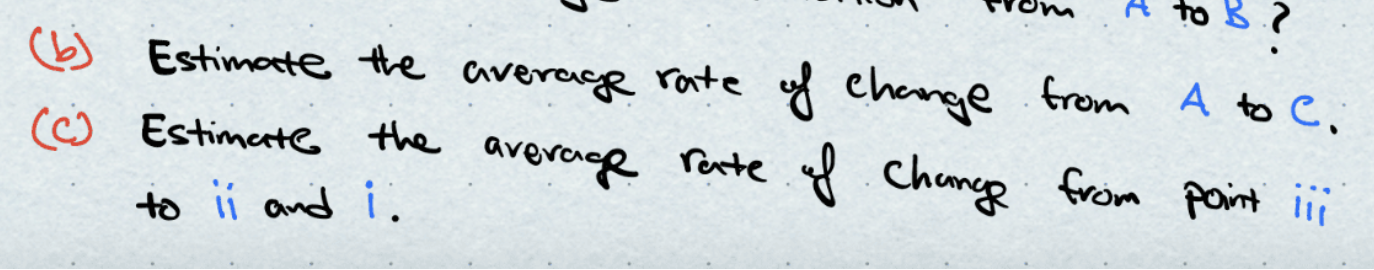 from A to B?
(b) Estimate the average rate of change from A to C.
(c) Estimate the average rate of change from point iii
to ii and i.